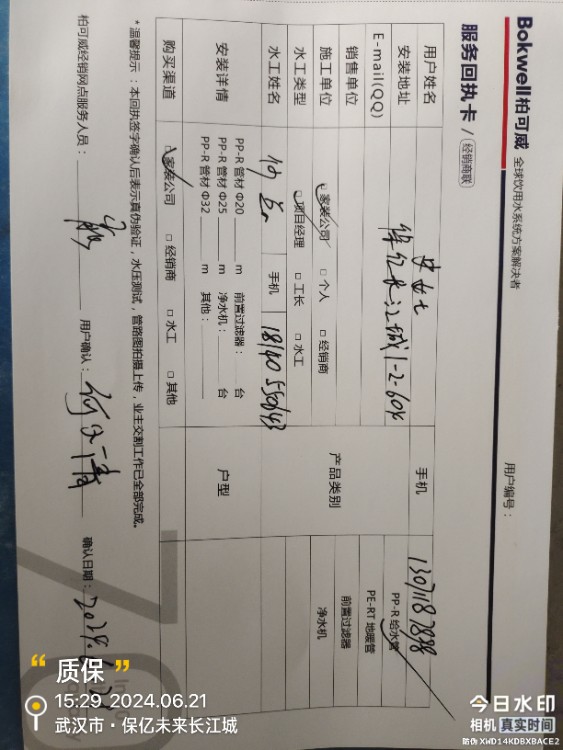 Bokwell柏可威 全球饮用水系统方案解决者
服务回执卡 / 经销商联
用户编号：
用户姓名 史女士 手机 13071187898
安装地址 保亿长江城1-2-604
E-mail(QQ)
销售单位
产品类别 PP-R 给水管
PE-RT 地暖管
前置过滤器
净水机
施工单位 □家装公司 □ 个人 □ 经销商
水工类型 □项目经理 □ 工长 □ 水工
水工姓名 手机 18140550643
安装详情 PP-R 管材 Φ20 m 前置过滤器： 台
PP-R 管材 Φ25 m 净水机： 台
PP-R 管材 Φ32 m 其他：
户型
购买渠道 □家装公司 □ 经销商 □ 水工 □ 其他
*温馨提示：本回执签字确认后表示真伪验证，水压测试，管路图拍摄上传，业主交割工作已全部完成。
柏可威经销网点服务人员： 用户确认： 确认日期：2024.6.21
“ 质保 ”
15:29 2024.06.21
武汉市·保亿未来长江城
今日水印
相机 真实时间
防伪 XWD14KDBXBACE2